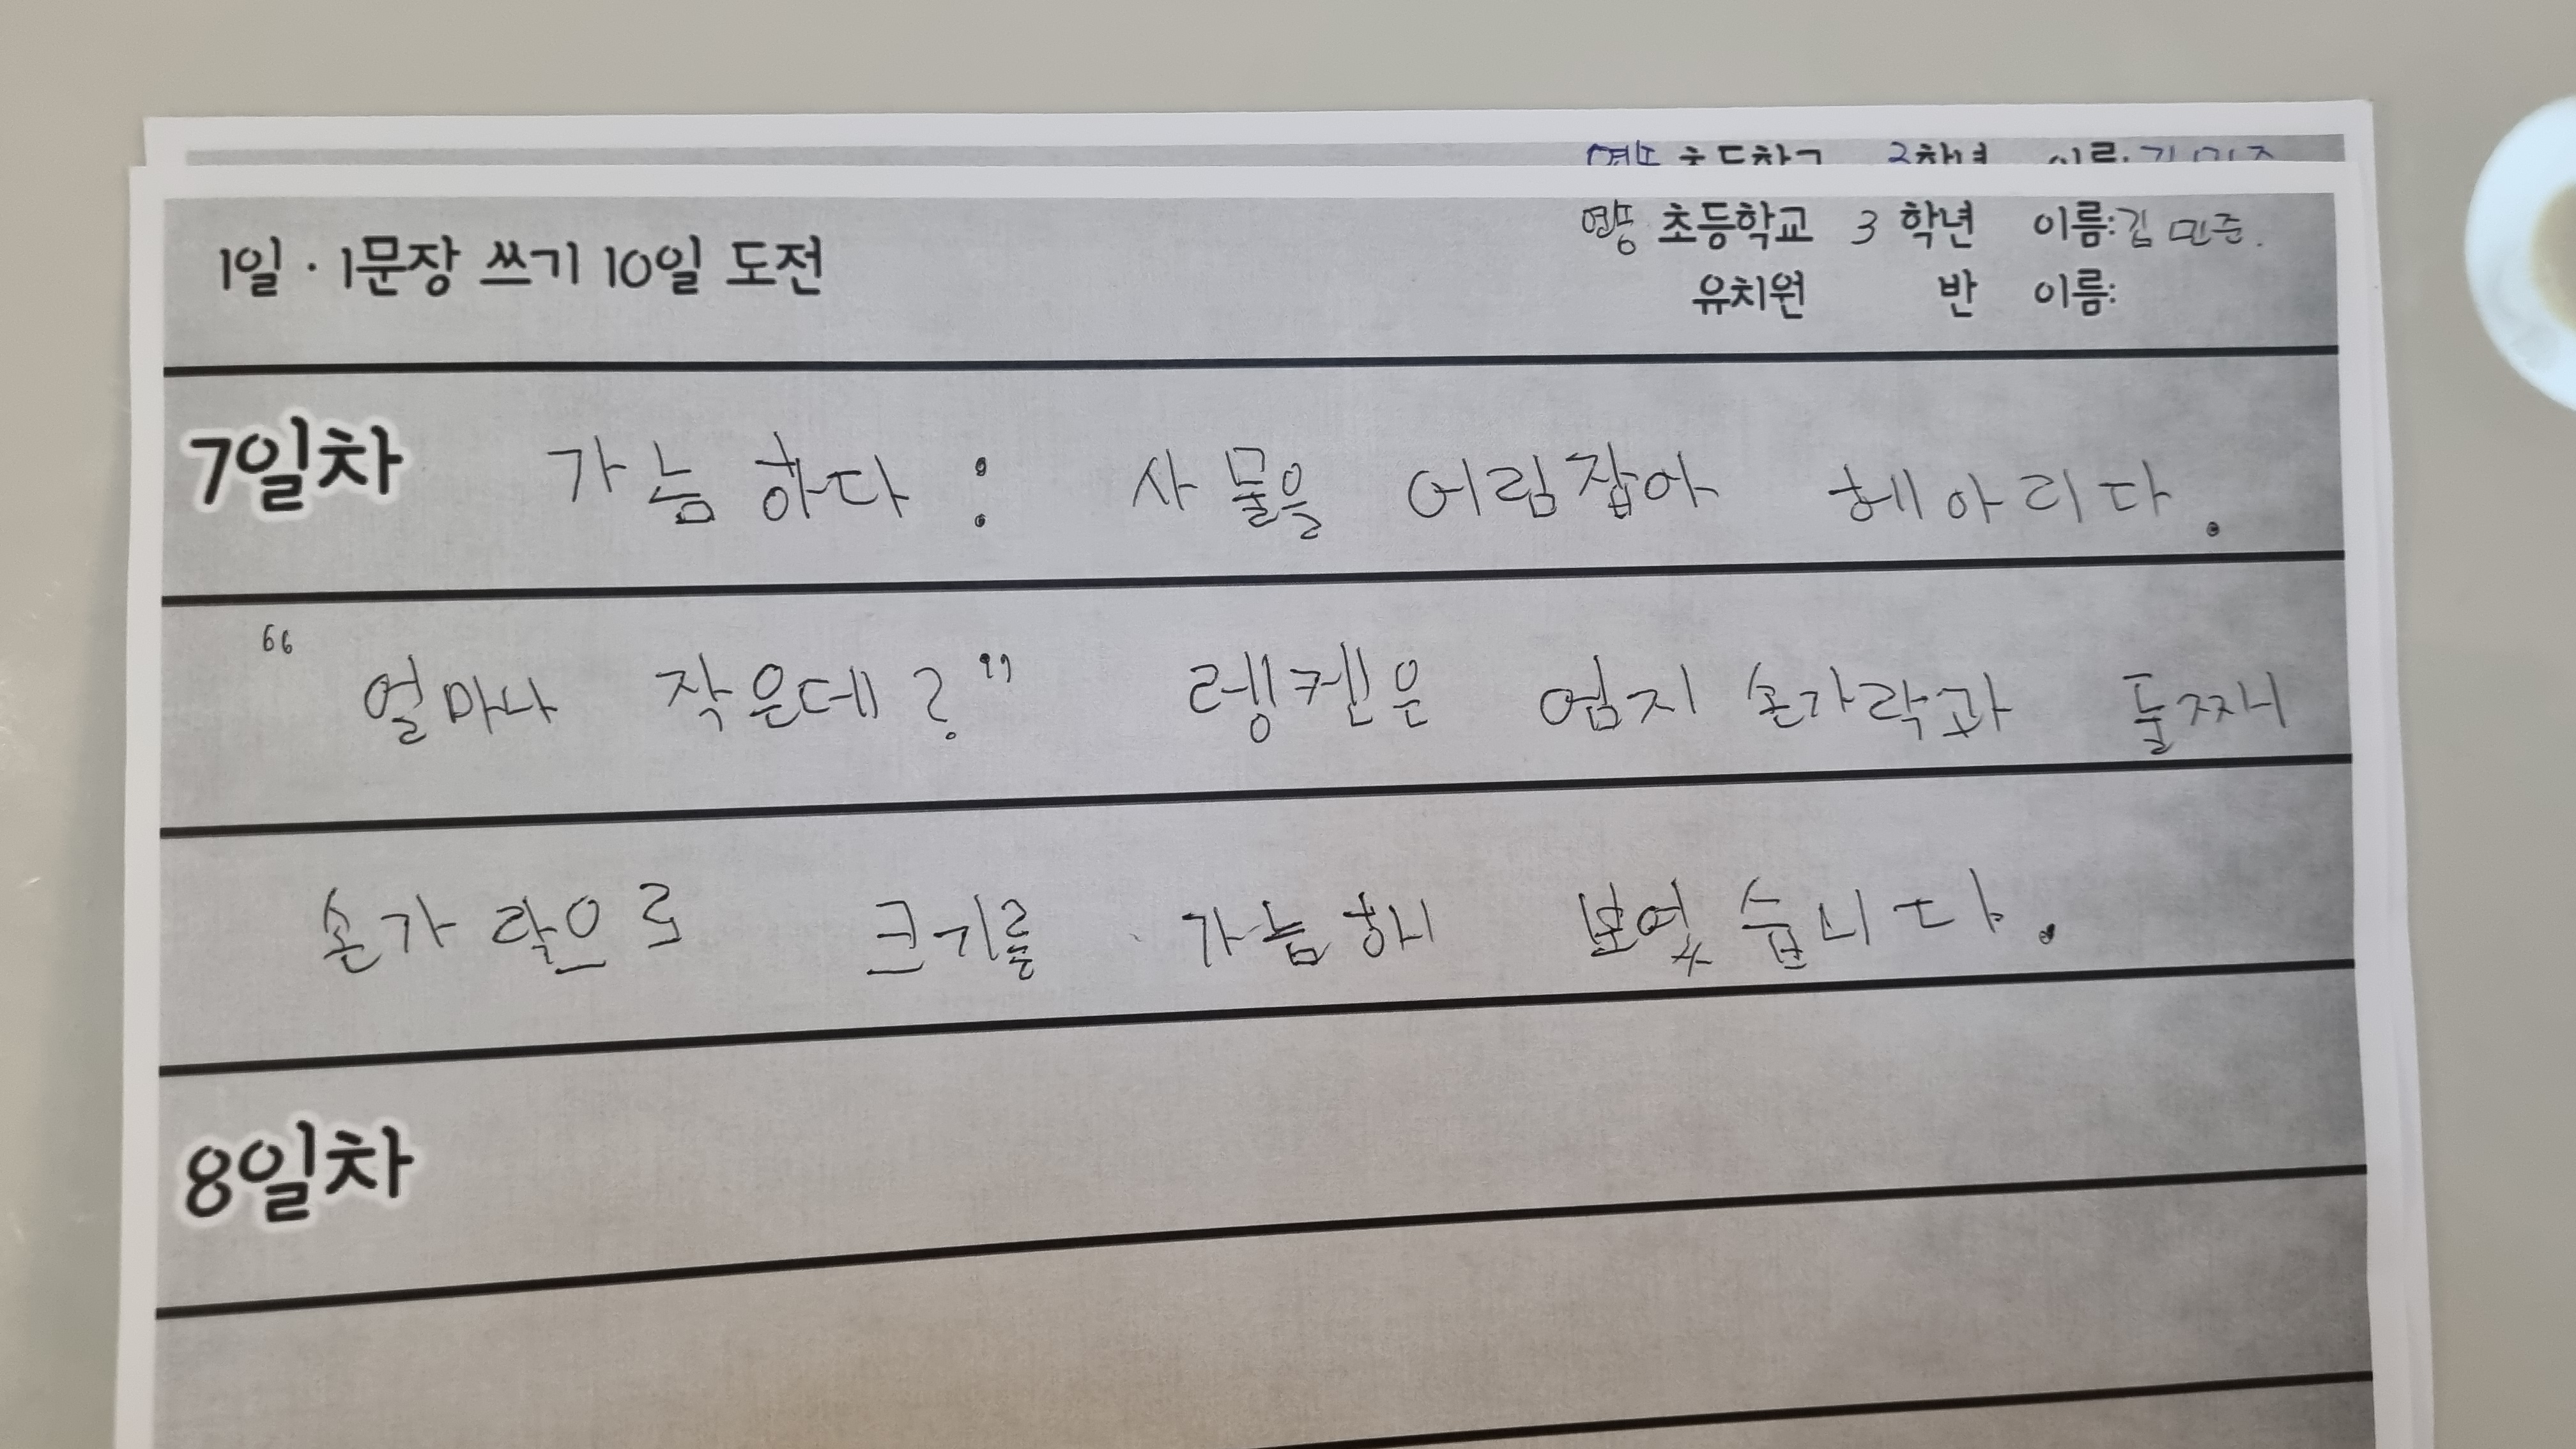 1일·1문장 쓰기 10일 도전
초등학교 3 학년 이름: 김민준.
유치원 반 이름:
7일차 가늠하다 : 사물을 어림잡아 헤아리다.
“얼마나 작은데?” 렝켄은 엄지 손가락과 둘째
손가락으로 크기를 가늠해 보였습니다.
8일차